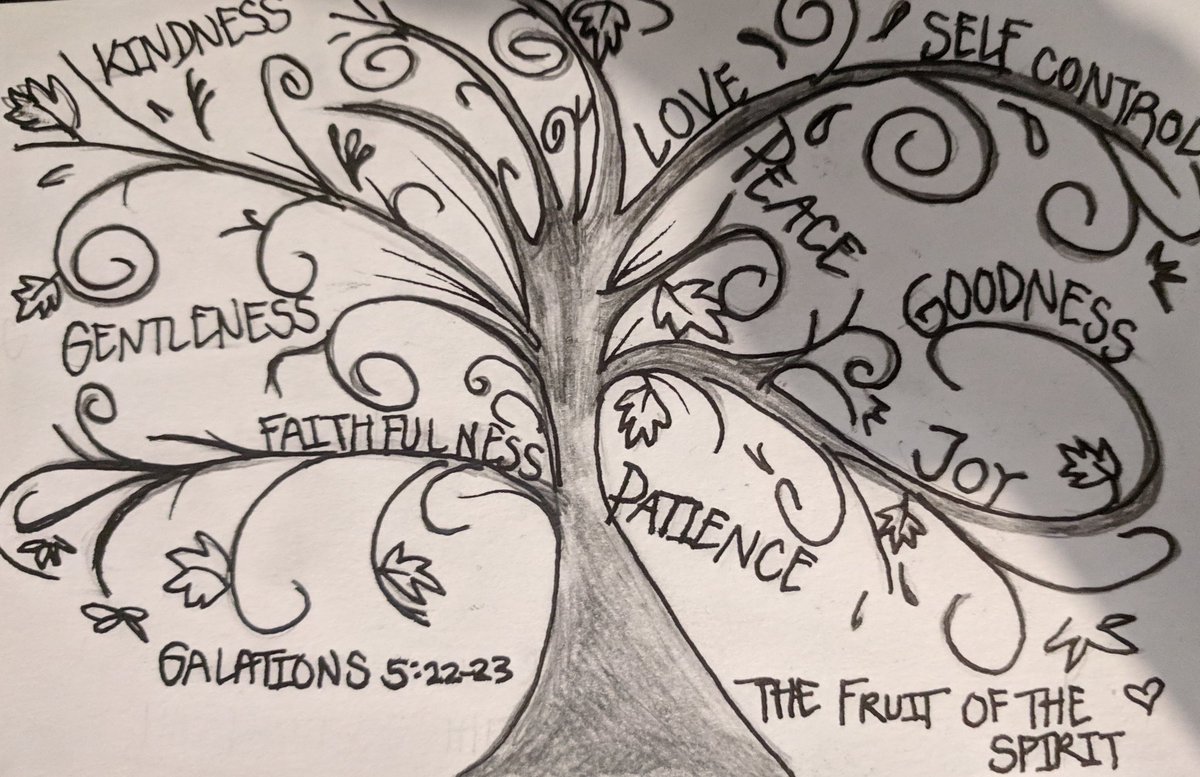 KINDNESS
LOVE
SELF CONTROL
PEACE
GENTLENESS
GOODNESS
FAITHFULNESS
JOY
PATIENCE
GALATIONS 5:22-23
THE FRUIT OF THE
SPIRIT